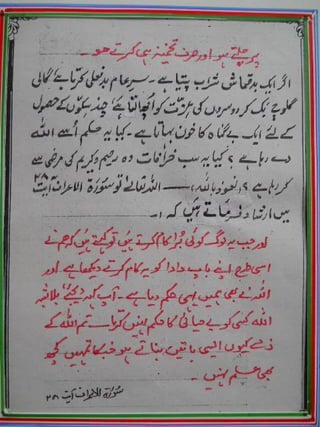 پر چلتے ہو اور صرف تخمینہ ہی کرتے ہو۔
اگر ایک بدقماش شراب پیتا ہے۔ سرعام بدفعلی کرتا ہے گالی
گلوچ بک کر دوسروں کی عزت کو اُچھالتا ہے چند سکّوں کے حصول
کے لئے ایک بے گناہ کا خون بہاتا ہے۔ کیا یہ حکم اُسے اللہ
دے رہا ہے؟ کیا یہ سب خرافات وہ رحیم و کریم کی مرضی سے
کر رہا ہے؟ (نعوذ باللہ) اللہ تعالیٰ تو سُوْرَۃ الاعراف آیت ۲۸
میں ارشاد فرماتے ہیں کہ :۔
اور جب یہ لوگ کوئی بُرا کام کرتے ہیں تو کہتے ہیں کہ ہم نے
اسی طرح اپنے باپ دادا کو یہ کام کرتے دیکھا ہے اور
اللہ نے بھی ہمیں یہی حکم دیا ہے۔ آپ کہہ دیجئے بلاشبہ
اللہ کسی کو بے حیائی کا حکم نہیں کرتا۔ تم اللہ کے
ذمے کیوں ایسی باتیں بناتے ہو جس کا تمہیں کچھ
بھی علم نہیں۔
سُوْرَۃ الاعراف آیت ۲۸